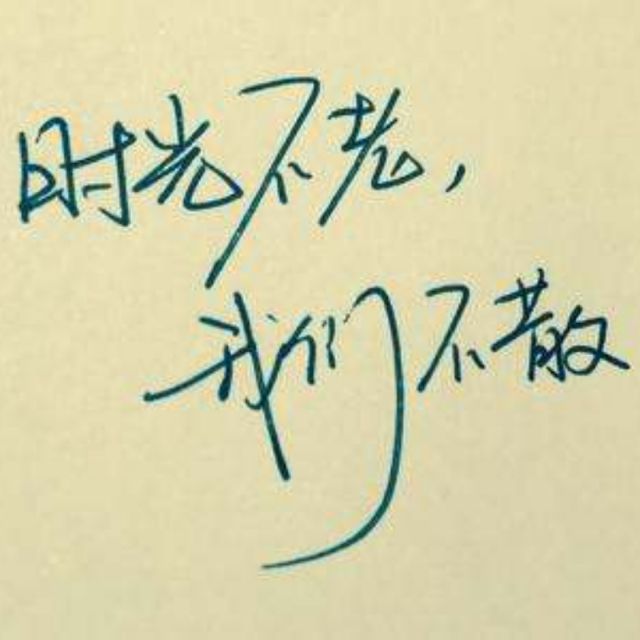 时光不老，
我们不散